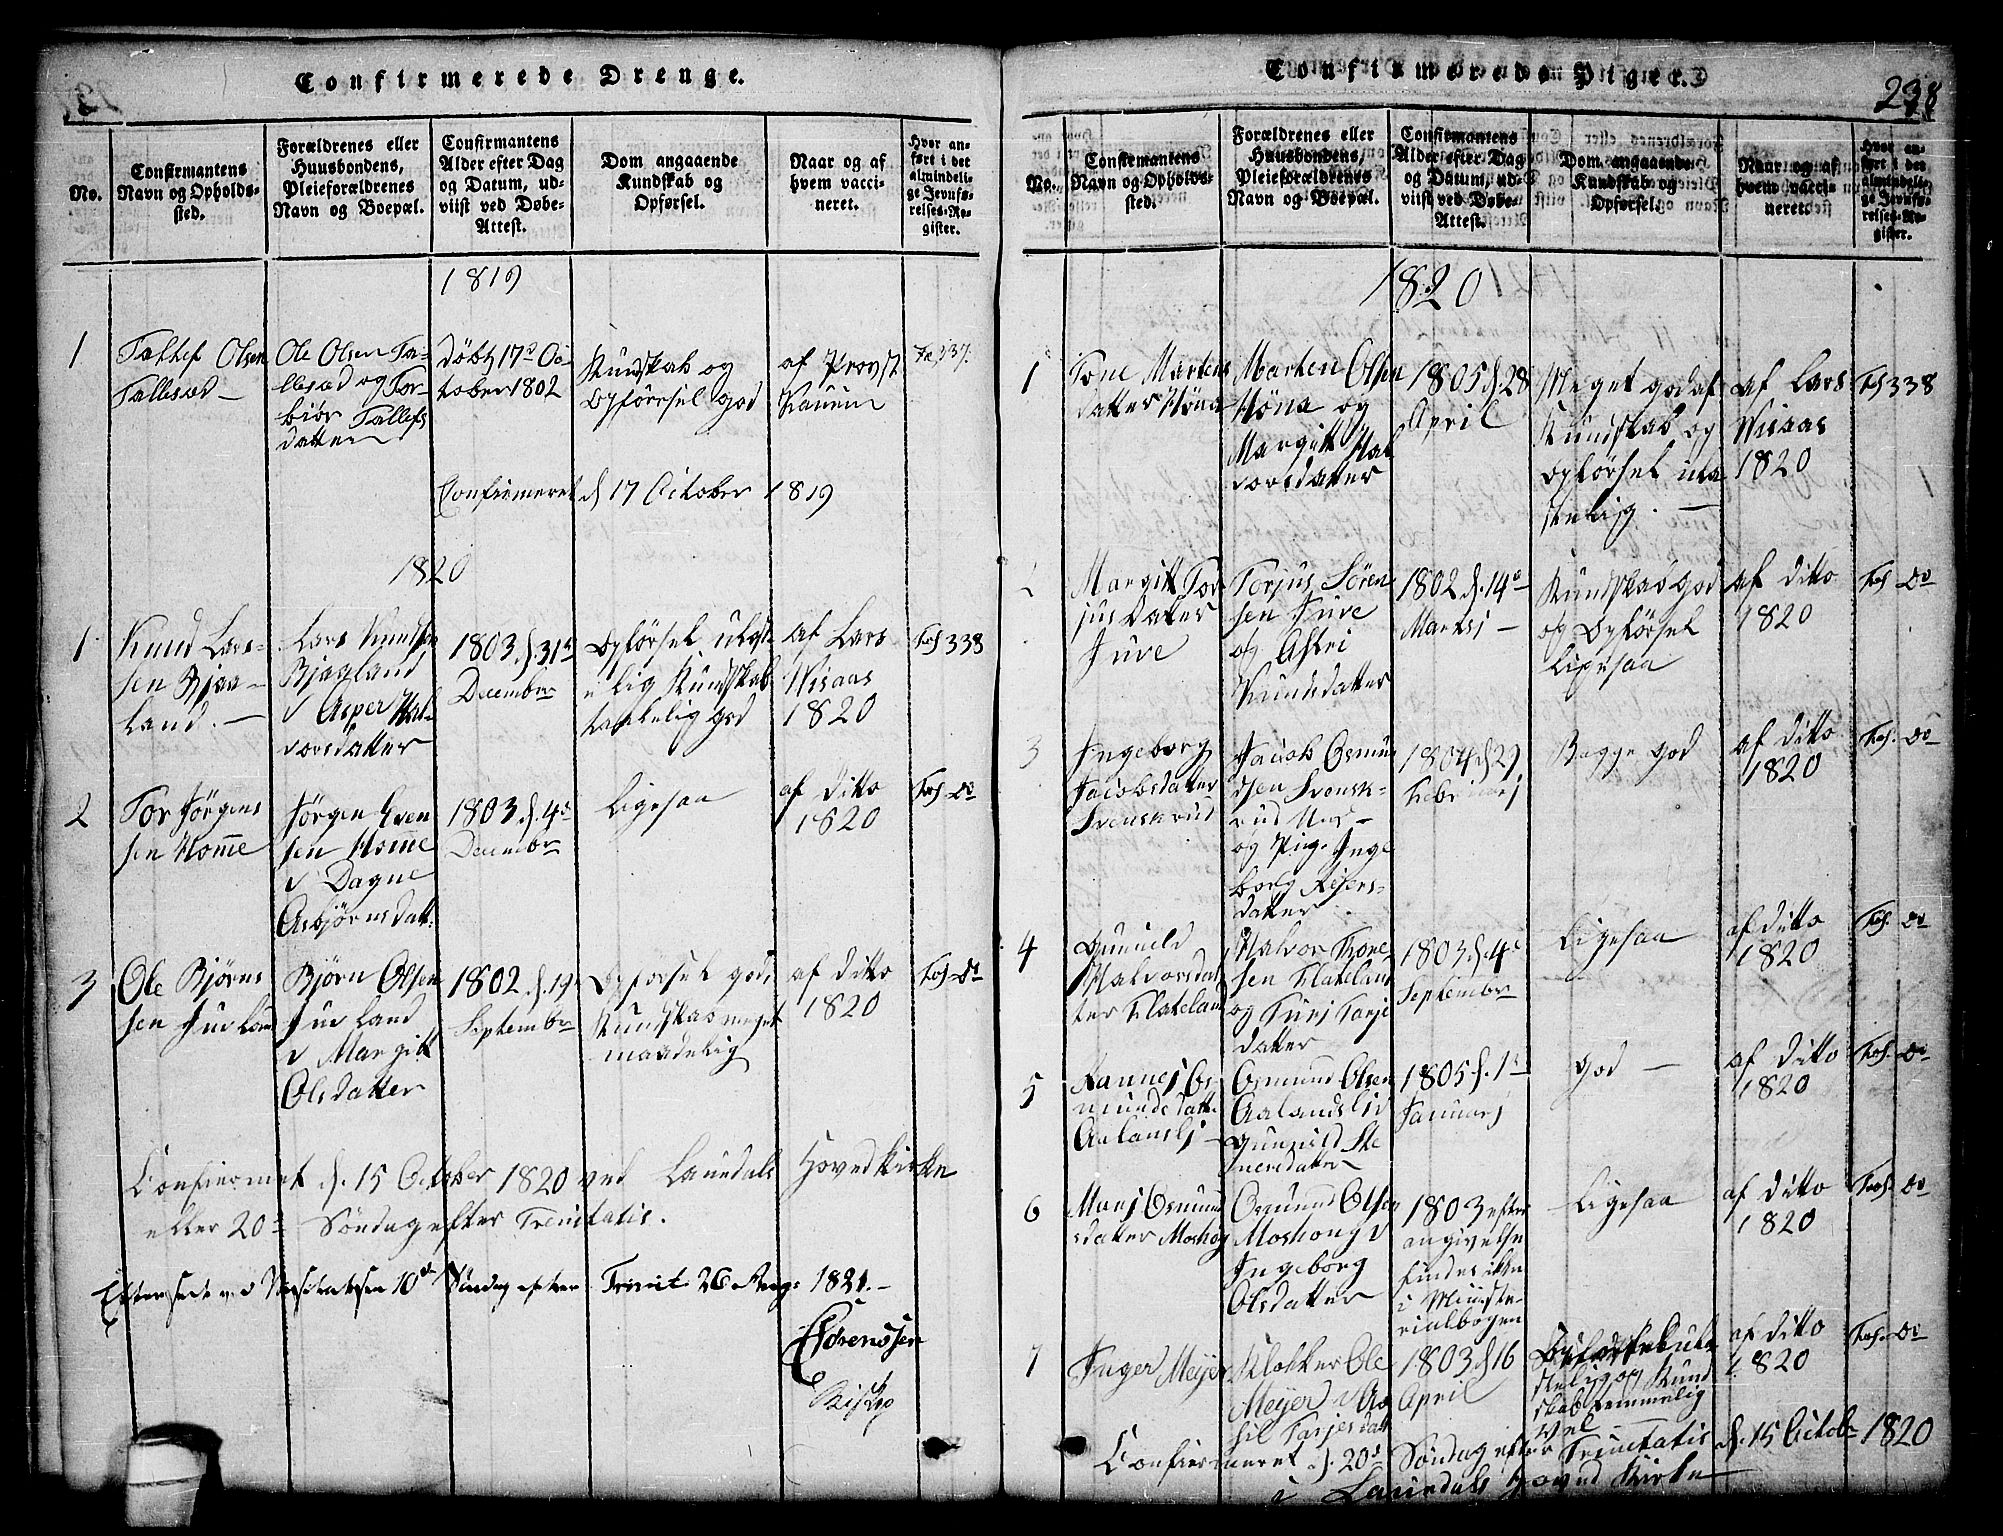 Confirmerede Drenge.
No.
Confirmantens
Navn og Opholds-
sted.
Forældrenes eller
Huusbondens,
Pleieforældrenes
Navn og Boepæl.
Confirmantens
Alder efter Dag
og Datum, ud-
viist ved Døbe-
Attest.
Dom angaaende
Kundskab og
Opførsel.
Naar og af
hvem vacci-
neret.
Hvor an-
ført i det
almindeli-
ge Jevnfø-
relses-Re-
gister.
1819
1
Olsen
Ole Olsen
og Tor-
datter
Døbt 17de Oc-
tober 1802
Kundskab og
Opførsel god
af Provst
337.
Confirmeret d 17 October 1819
1820
1
Knud Lars-
sen Bjaa-
land. —
Lars Knudsen
Bjaaland
Asper Hal-
vorsdatter
1803 d. 31te
December
Opførsel ulast-
elig Kundskab
taalelig god
af Lars
Nisaas
1820
Fol 338
2
Tor Jørgens
sen Homme
Jørgen Even
sen Homme
Dagne
Asbjørnsdatt.
1803 d. 4de
December
Ligesaa
af ditto
1820
Fol. Do
3
Ole Bjørns
sen Juvland
Bjørn Olsen
Juvland
Margit
Olsdatter
1802 d. 19
September
Opførsel god,
Kundskab meget
maadelig
af ditto
1820
Fol. Do
Confirmeret d. 15 October 1820 ved Laurdals Hovedkirke
eller 20de Søndag efter Trinitatis.
Efterseet ved Visitatsen 10de Søndag efter Trinit 26 Aug. 1821. —
Sørenssen
Biskop
Confirmerede Piger.
238
No.
Confirmantens
Navn og Opholds-
sted.
Forældrenes eller
Huusbondens,
Pleieforældrenes
Navn og Boepæl.
Confirmantens
Alder efter Dag
og Datum, ud-
viist ved Døbe-
Attest.
Dom angaaende
Kundskab og
Opførsel.
Naar og af
hvem vacci-
neret.
Hvor an-
ført i det
almindeli-
ge Jevnfø-
relses-Re-
gister.
1820
1
Tone Martens
datter Høna
Marten Olsen
Høna og
Margit Hal
vorsdatter
1805 d. 28
April
Meget god af
Kundskab og
Opførsel ula
stelig. —
af Lars
Nisaas
1820
Fol 338
2
Margit Tor
jusdatter
Juve
Torjus Søren
sen Juve
og Astri
Knudsdatter
1802 d. 14de
Martsj —
Kundskab god
og Opførsel
Ligesaa
af ditto
1820
Fol Do
3
Ingeborg
Jacobsdatter
Svenskrud
Jacob Osmun
dsen Svensk-
rud
og Pig. Inge
borg
datter
1804 d 29
Februarj
Begge god
af ditto
1820
Fol. Do
4
Gunild
Halvorsdat
ter Flateland
Halvor Tore
sen Flateland
og Turj Tarje
datter
1803 d. 4de
September
Ligesaa
af ditto
1820
Fol. Do
5
Rannej Os
mundsdatt.
Aalandsli —
Osmund Olsen
Aalandsli v
Gunhild Ste
nersdatter
1805 d. 1te
Januarj
God —
af ditto
1820
Fol. Do
6
Marj Osmund
sdatter Moshog
Osmund Olsen
Moshoug v
Ingeborg
Olsdatter
1803 efter
angivelse
findes ikke
i Ministe-
rialbogen
Ligesaa
af ditto
1820
Fol. Do
7
Inger Meyer
Klokker Ole
Meyer v As
sil Tarjesdatt
1803 d 16
April
Opførsel ula
stelig og Kund
skab temmelig
vel
af ditto
1820
Fol. Do
Confirmeret d. 20de Søndag efter Trinitatis d. 15 Octob. 1820
i Laurdals Hoved Kirke